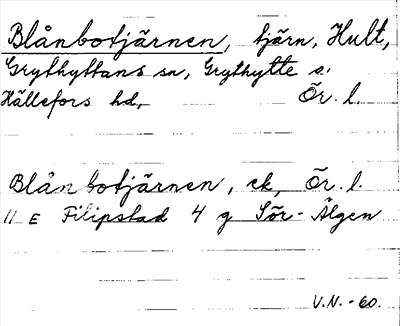 Blånbotjärnen, tjärn, Hult,
Grythyttans sn, Grythytte o.
Hällefors hd, Ör. l.
Blånbotjärnen, ek, Ör. l.
11 E Filipstad 4 g Sör-Älgen
V.N. -60.